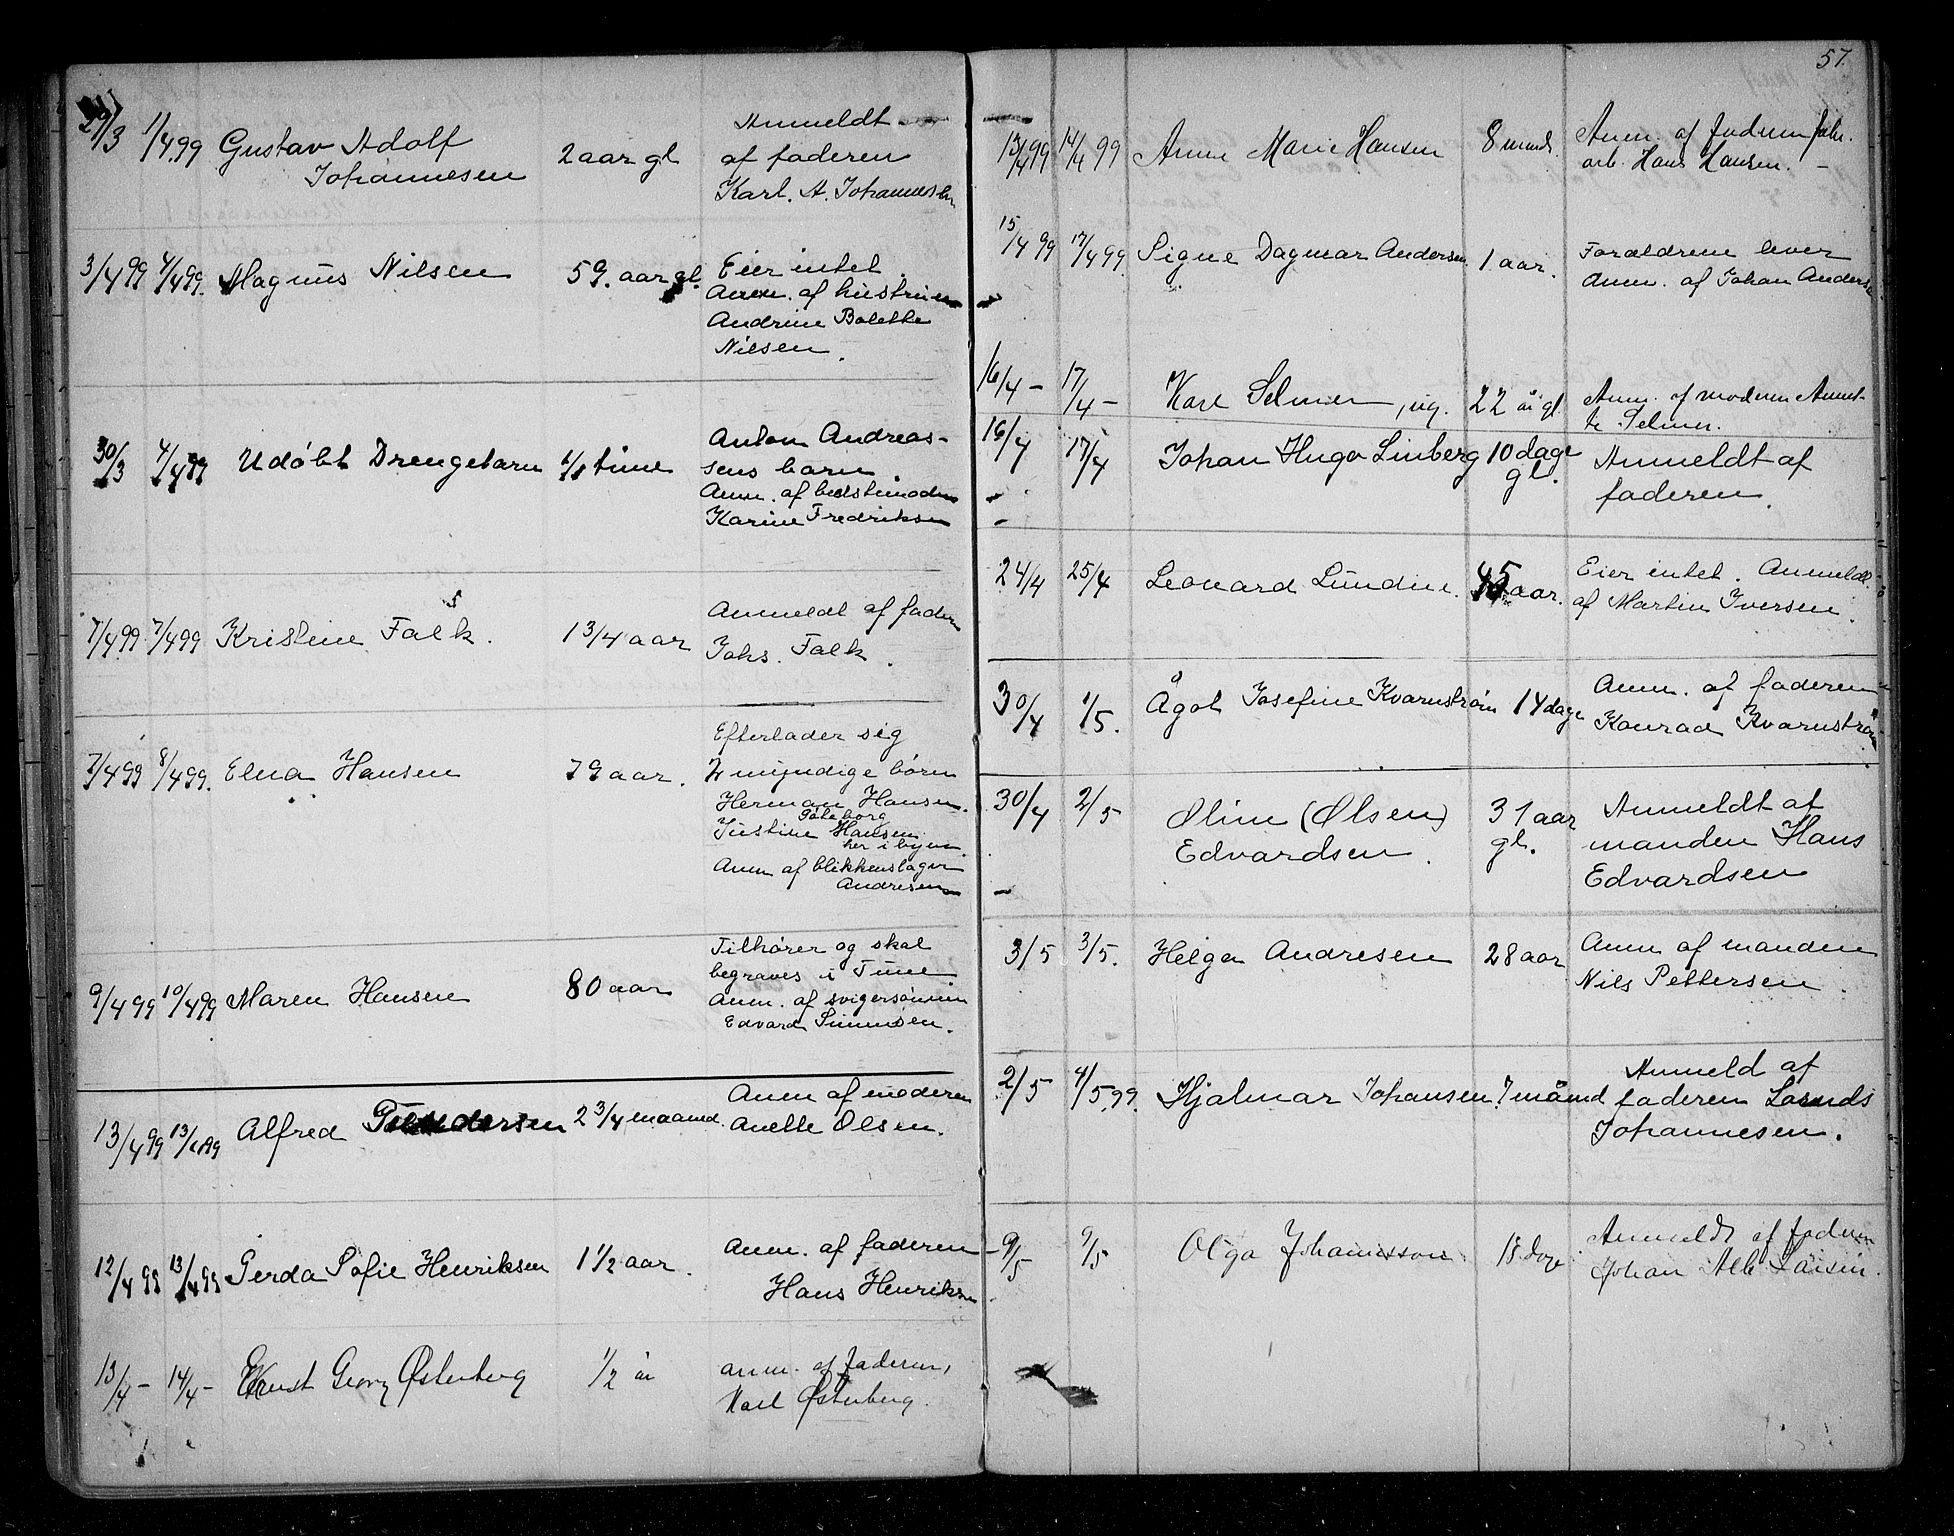 29/3 1/4 99 Gustav Adolf 2 aar gl Anmeldt
Johannesen af faderen
Karl. A. Johannessen
3/4 99 4/4 99. Magnus Nilsen 59. aar gl. Eier intet.
Anm. af hustruen
Andrine Bolette
Nilsen.
30/3 4/4 99 Udøbt Drengebarn 1/2 time Anton Andreas-
sens barn.
Anm. af bedstemoderen
Karine Fredriksen
7/4 99 7/4 99 Kristine Falk. 1 3/4 aar Anmeldt af faderen
Johs. Falk.
7/4 99 8/4 99. Elna Hansen 79 aar. Efterlader sig
2 myndige børn
Herman Hansen.
Gøteborg
Justine Hansen
her i byen.
Anm af blikkenslager
Andresen
9/4 99 10/4 99 Maren Hansen 80 aar Tilhører og skal
begraves i Tune
Anm. af svigersønnen
Edvard Simensen.
13/4 99 13/4 99 Alfred 2 3/4 maaned. Anm af moderen
Anette Olsen.
12/4 99 13/4 99 Gerda Sofie Henriksen 1 1/2 aar. Anm. af faderen
Hans Henriksen
13/4 - 14/4 - Ernst Georg Østerberg 1/2 år anm. af faderen,
Karl Østerberg.
57.
13/4 99 14/4 99 Anne Marie Hansen 8 maned. Anm. af faderen fabr.
arb. Hans Hansen. -
15/4 99 17/4 99. Signe Dagmar Andersen. 1 aar. Forældrene lever
Anm. af Johan Andersen
16/4 - 17/4 - Karl Selmer, ug. 22 år gl. Anm. af moderen Annet-
te Selmer.
16/4 17/4 Johan Hugo Linberg 10 dage Anmeldt af
gl. faderen.
24/4 25/4 Leonard Lundin. 45 aar. Eier intet. Anmeldt
af Martin Iversen.
30/4 1/5. Ågot Josefine Kvarnstrøm 14 dage Anm. af faderen
Konrad Kvarnstrøm
30/4 2/5 Oline (Olsen) 31 aar Anmeldt af
Edvardsen. gl. manden Hans
Edvardsen
3/5 3/5. Helga Andresen 28 aar Anm af manden
Nils Pettersen.
2/5 4/5 99. Hjalmar Johansen. 7 månd Anmeld af
faderen
Johannesen.
9/5 9/5 Olga Johannsson. 18 dage Anmeldt af faderen
Johan Alb